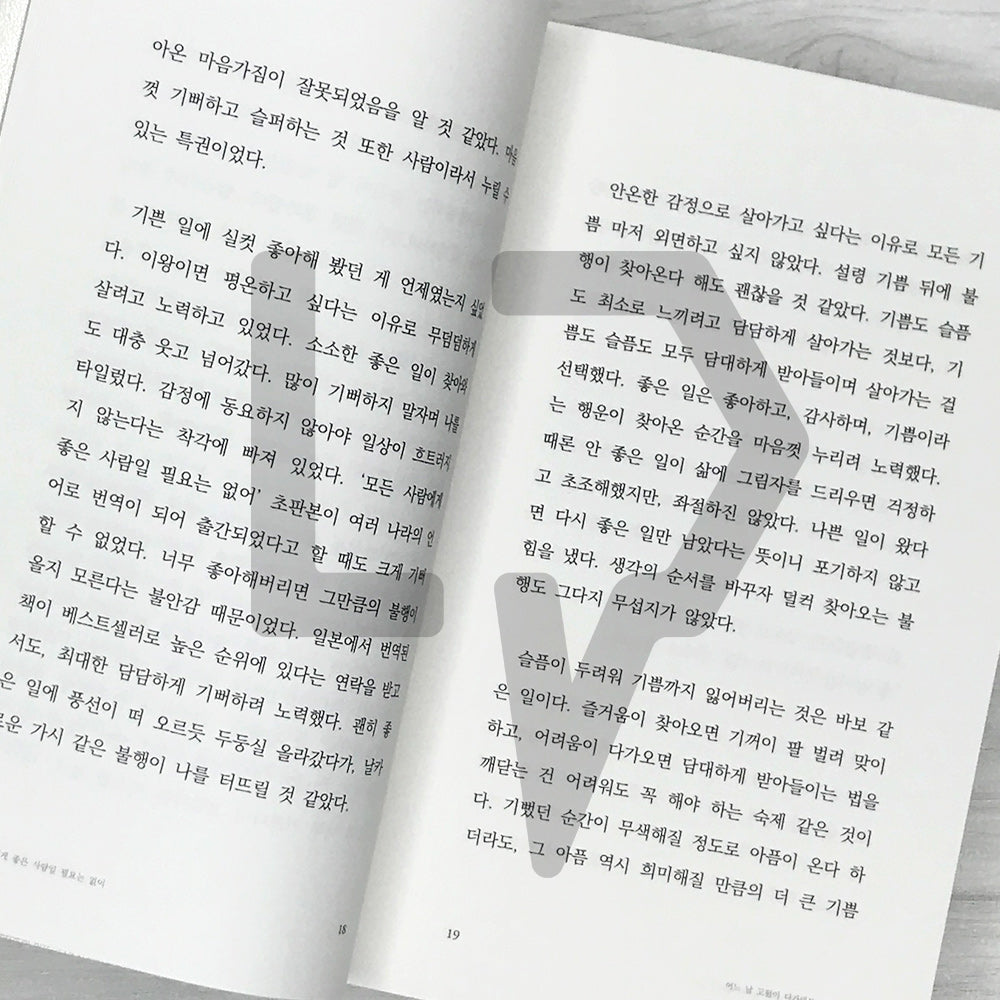 아온 마음가짐이 잘못되었음을 알 것 같았다. 마음
껏 기뻐하고 슬퍼하는 것 또한 사람이라서 누릴 수
있는 특권이었다.
기쁜 일에 실컷 좋아해 봤던 게 언제였는지 싶었
다. 이왕이면 평온하고 싶다는 이유로 무덤덤하게
살려고 노력하고 있었다. 소소한 좋은 일이 찾아와
도 대충 웃고 넘어갔다. 많이 기뻐하지 말자며 나를
타일렀다. 감정에 동요하지 않아야 일상이 흐트러지
지 않는다는 착각에 빠져 있었다. ‘모든 사람에게
좋은 사람일 필요는 없어’ 초판본이 여러 나라의 언
어로 번역이 되어 출간되었다고 할 때도 크게 기뻐
할 수 없었다. 너무 좋아해버리면 그만큼의 불행이
올지 모른다는 불안감 때문이었다. 일본에서 번역된
책이 베스트셀러로 높은 순위에 있다는 연락을 받고
서도, 최대한 담담하게 기뻐하려 노력했다. 괜히 좋
은 일에 풍선이 떠 오르듯 두둥실 올라갔다가, 날카
로운 가시 같은 불행이 나를 터뜨릴 것 같았다.
게 좋은 사람일 필요는 없어
18
안온한 감정으로 살아가고 싶다는 이유로 모든 기
쁨 마저 외면하고 싶지 않았다. 설령 기쁨 뒤에 불
행이 찾아온다 해도 괜찮을 것 같았다. 기쁨도 슬픔
도 최소로 느끼려고 담담하게 살아가는 것보다, 기
쁨도 슬픔도 모두 담대하게 받아들이며 살아가는 걸
선택했다. 좋은 일은 좋아하고, 감사하며, 기쁨이라
는 행운이 찾아온 순간을 마음껏 누리려 노력했다.
때론 안 좋은 일이 삶에 그림자를 드리우면 걱정하
고 초조해했지만, 좌절하진 않았다. 나쁜 일이 왔다
면 다시 좋은 일만 남았다는 뜻이니 포기하지 않고
힘을 냈다. 생각의 순서를 바꾸자 덜컥 찾아오는 불
행도 그다지 무섭지가 않았다.
슬픔이 두려워 기쁨까지 잃어버리는 것은 바보 같
은 일이다. 즐거움이 찾아오면 기꺼이 팔 벌려 맞이
하고, 어려움이 다가오면 담대하게 받아들이는 법을
깨닫는 건 어려워도 꼭 해야 하는 숙제 같은 것이
다. 기뻤던 순간이 무색해질 정도로 아픔이 온다 하
더라도, 그 아픔 역시 희미해질 만큼의 더 큰 기쁨
19
어느 날